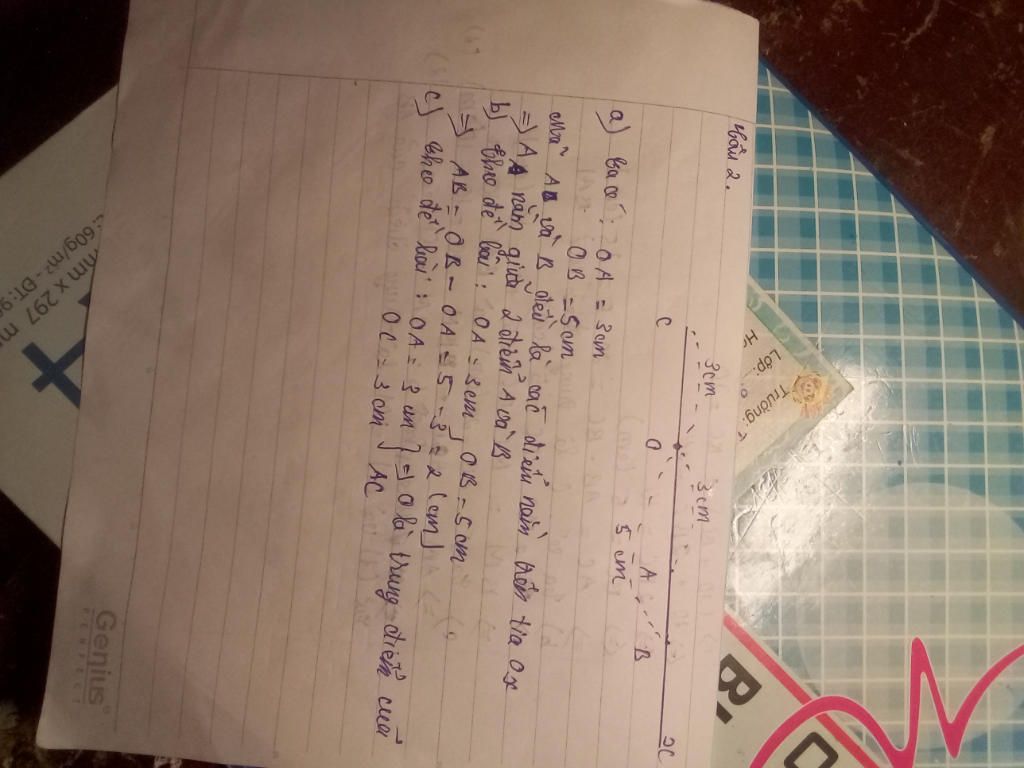 Câu 2.
3cm
3cm
C
O
A
B
x
5cm
a) Ta có: OA = 3cm
OB = 5cm
Mà A và B đều là các điểm nằm trên tia Ox
=) A nằm giữa 2 điểm A và B
b) Theo đề bài: OA = 3cm, OB = 5cm
=) AB = OB - OA = 5 - 3 = 2 (cm)
c) Theo đề bài: OA = 3 cm } =) O là trung điểm của
OC = 3 cm } AC
Genius
PERFECT
Trường: T
Lớp:
60g/m² - ĐT:9
mm x 297 mm